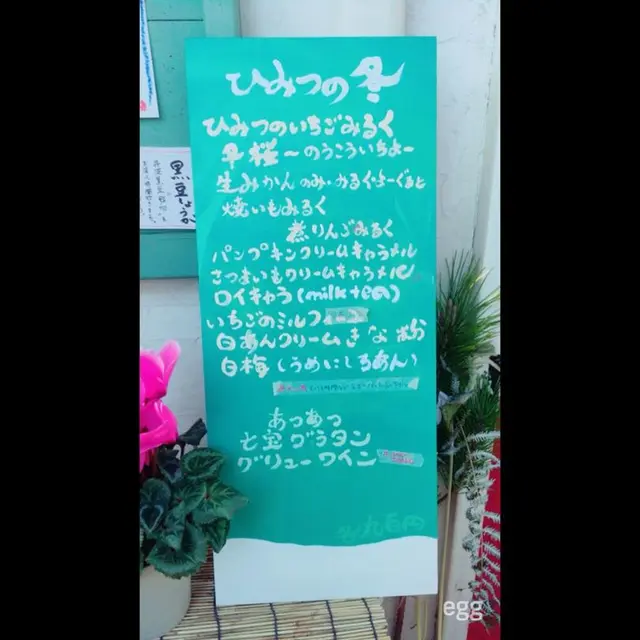 ひみつの冬
ひみつのいちごみるく
早桜〜のうこういちよー
生みかん のみ・みるくよーぐると
焼いもみるく
煮りんごみるく
パンプキンクリームキャラメル
さつまいもクリームキャラメル
ロイキャラ(milk tea)
いちごのミルフィーユ
白あんクリームきな粉
白梅(うめにしろあん)
あつあつ
七宝グラタン
グリューワイン
九百円
黒豆しょうが
egg